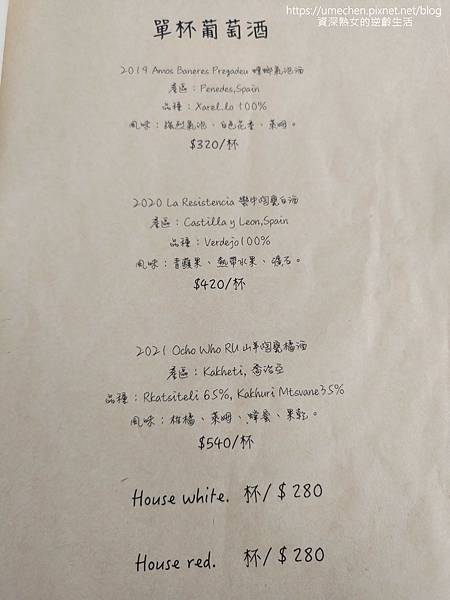 https://umechen.pixnet.net/blog
資深熟女的逆齡生活
單杯葡萄酒
2019 Amos Baneres Pregadeu 螳螂氣泡酒
產區：Penedes,Spain
品種：Xarel.lo 100%
風味：強烈氣泡、白色花香、萊姆。
$320/杯
2020 La Resistencia 陶甕白酒
產區：Castilla y Leon,Spain
品種：Verdejo100%
風味：青蘋果、熱帶水果、礦石。
$420/杯
2021 Ocho Who RU 山羊陶甕橘酒
產區：Kakheti, 喬治亞
品種：Rkatsiteli 65%, Kakhuri Mtsvane35%
風味：柑橘、萊姆、蜂蜜、果乾。
$540/杯
House white. 杯/$280
House red. 杯/$280